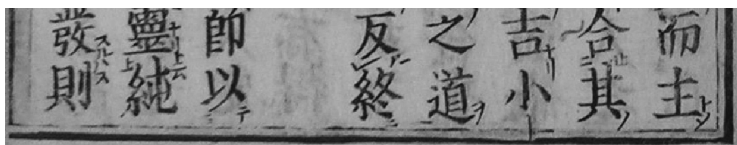 而主
合其
吉小
之道
反終
即以
靈純
發則